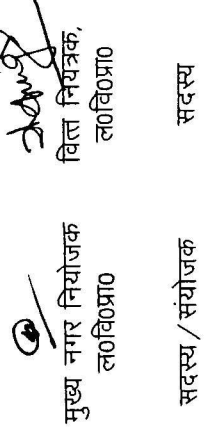 मुख्य नगर नियोजक
ल०वि०प्रा०
सदस्य / संयोजक
वित्त नियंत्रक,
ल०वि०प्रा०
सदस्य